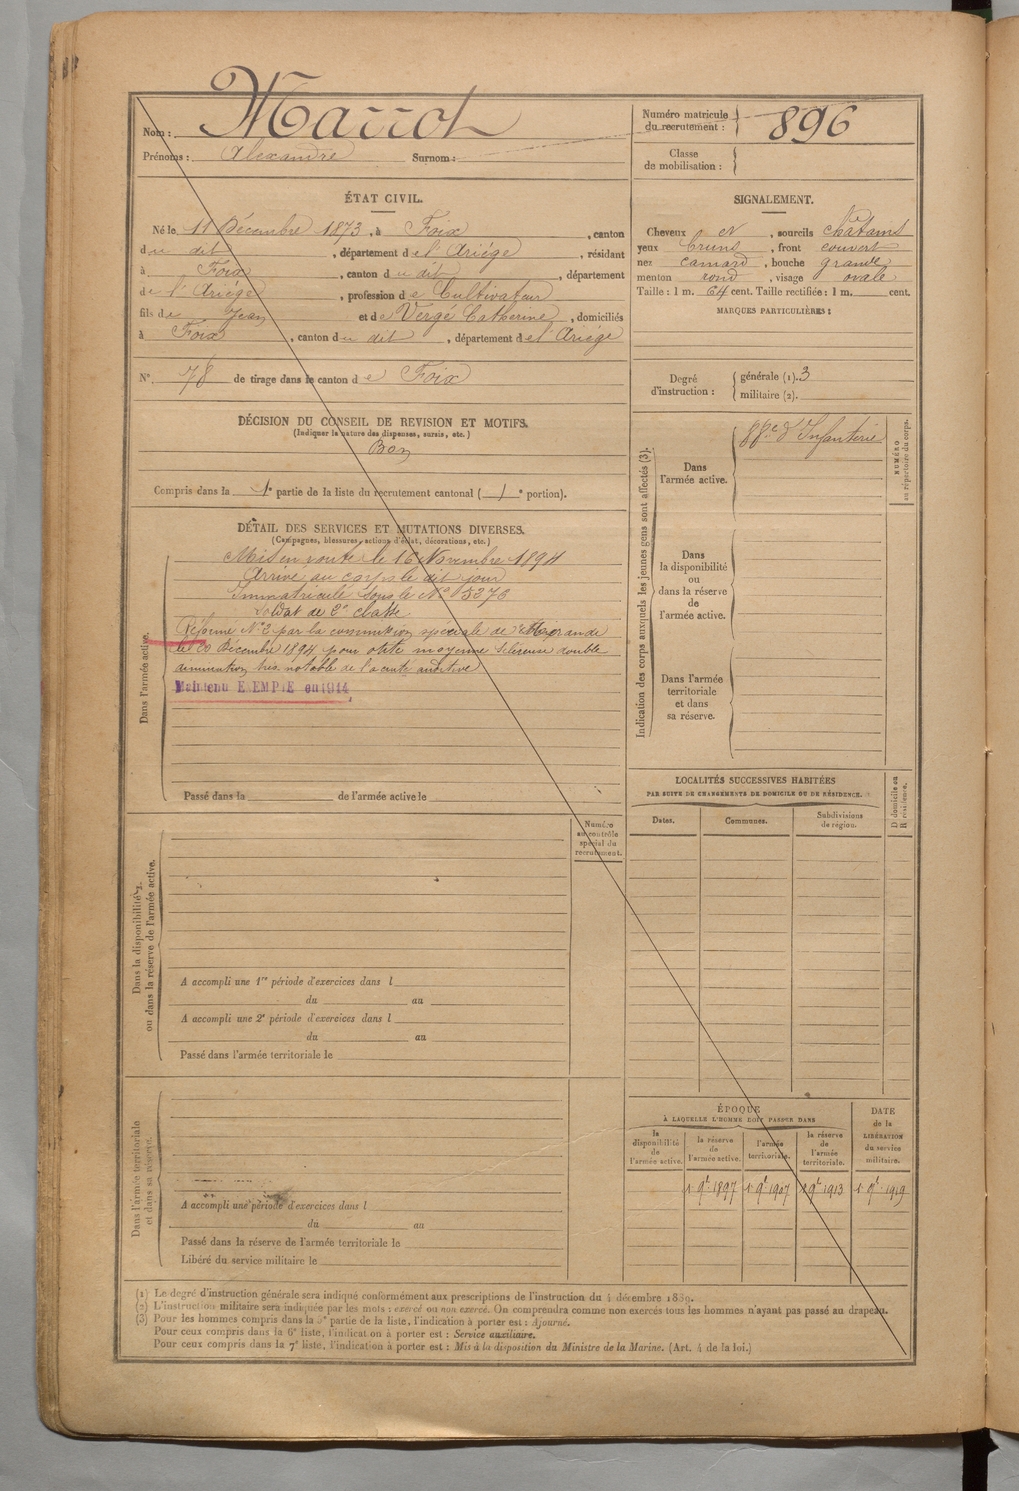 Nom : Marrot
Prénoms : Alexandre Surnom :
Numéro matricule du recrutement : 896
Classe de mobilisation :
ÉTAT CIVIL.
Né le 11 Décembre 1873, à Foix, canton
du dit, département de l'Ariége, résidant
à Foix, canton du dit, département
de l'Ariége, profession de Cultivateur
fils de Jean et de Vergé Catherine, domiciliés
à Foix, canton du dit, département de l'Ariége
N° 78 de tirage dans le canton de Foix
SIGNALEMENT.
Cheveux et, sourcils châtains
yeux bruns, front couvert
nez camard, bouche grande
menton rond, visage ovale
Taille : 1 m. 64 cent. Taille rectifiée : 1 m. cent.
MARQUES PARTICULIÈRES :
Degré d'instruction : générale (1). 3
militaire (2).
DÉCISION DU CONSEIL DE REVISION ET MOTIFS.
(Indiquer la nature des dispenses, sursis, etc.)
Bon
Compris dans la 1e partie de la liste du recrutement cantonal (1e portion).
DÉTAIL DES SERVICES ET MUTATIONS DIVERSES.
(Campagnes, blessures, actions d'éclat, décorations, etc.)
Dans l'armée active.
Mis en route le 16 Novembre 1894
Arrivé au corps le dit jour
Immatriculé sous le N° 5373
Soldat de 2e classe
Réformé N° 2 par la commission spéciale de Mirande
le 20 Décembre 1894 pour otite moyenne scléreuse double
diminution très notable de l'acuité auditive
Maintenu EXEMPTÉ en 1914
Passé dans la de l'armée active le
Indication des corps auxquels les jeunes gens sont affectés (3).
Dans l'armée active.
88e d'Infanterie
NUMÉRO au répertoire du corps.
Dans la disponibilité ou dans la réserve de l'armée active.
Dans l'armée territoriale et dans sa réserve.
LOCALITÉS SUCCESSIVES HABITÉES
PAR SUITE DE CHANGEMENTS DE DOMICILE OU DE RÉSIDENCE.
Dates.
Communes.
Subdivisions de région.
D domicile ou R résidence.
Numéro au contrôle spécial du recrutement.
Dans la disponibilité ou dans la réserve de l'armée active.
A accompli une 1re période d'exercices dans l
du au
A accompli une 2e période d'exercices dans l
du au
Passé dans l'armée territoriale le
Dans l'armée territoriale et dans sa réserve.
A accompli une période d'exercices dans l
du au
Passé dans la réserve de l'armée territoriale le
Libéré du service militaire le
ÉPOQUE
À LAQUELLE L'HOMME DOIT PASSER DANS
la disponibilité de l'armée active.
la réserve de l'armée active.
l'armée territoriale.
la réserve de l'armée territoriale.
DATE de la LIBÉRATION du service militaire.
1 9e 1897
1 9e 1907
1 9e 1913
1 9e 1919
(1) Le degré d'instruction générale sera indiqué conformément aux prescriptions de l'instruction du 4 décembre 1889.
(2) L'instruction militaire sera indiquée par les mots : exercé ou non exercé. On comprendra comme non exercés tous les hommes n'ayant pas passé au drapeau.
(3) Pour les hommes compris dans la 5e partie de la liste, l'indication à porter est : Ajourné.
Pour ceux compris dans la 6e liste, l'indication à porter est : Service auxiliaire.
Pour ceux compris dans la 7e liste, l'indication à porter est : Mis à la disposition du Ministre de la Marine. (Art. 4 de la loi.)